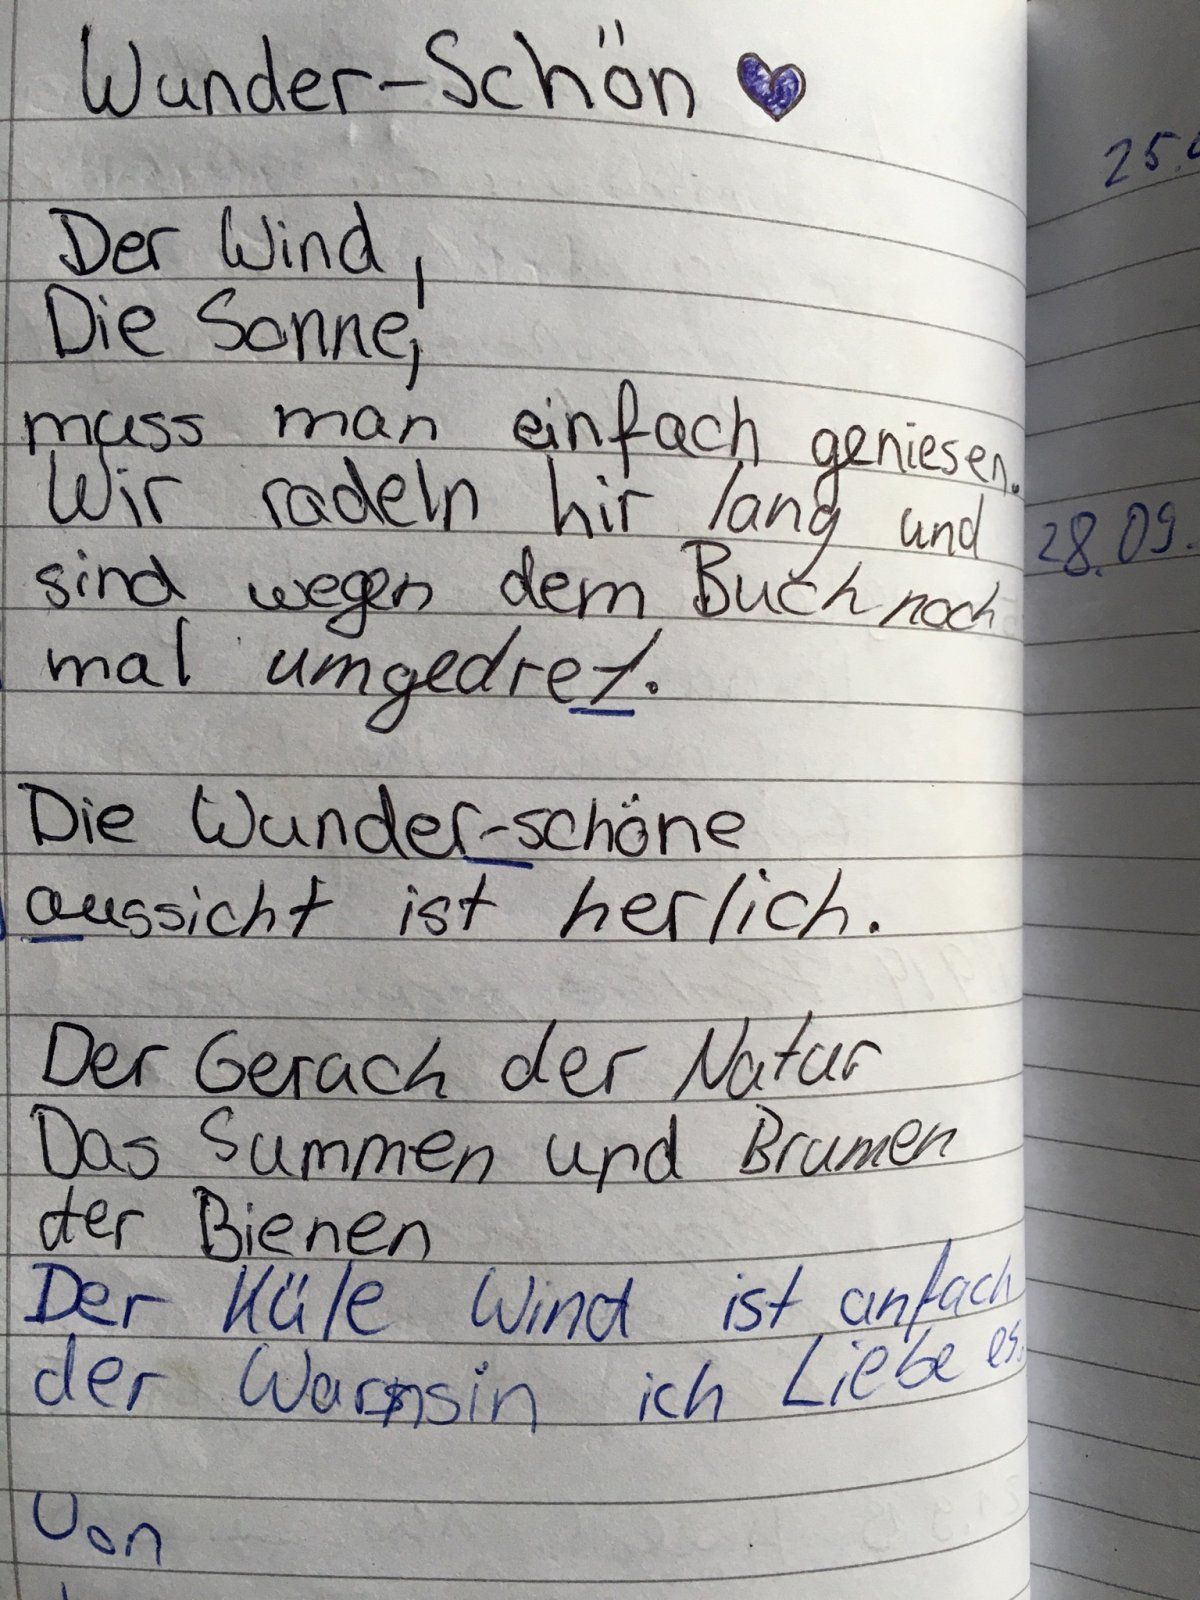 Wunder-Schön
Der Wind,
Die Sonne,
muss man einfach geniesen.
Wir radeln hir lang und
sind wegen dem Buch noch
mal umgedret.
Die Wunder-schöne
aussicht ist herlich.
Der Gerach der Natur
Das Summen und Brumen
der Bienen
Der Küle Wind ist anfach
der Warnsin ich Liebe es.
Von
25.
28.09.